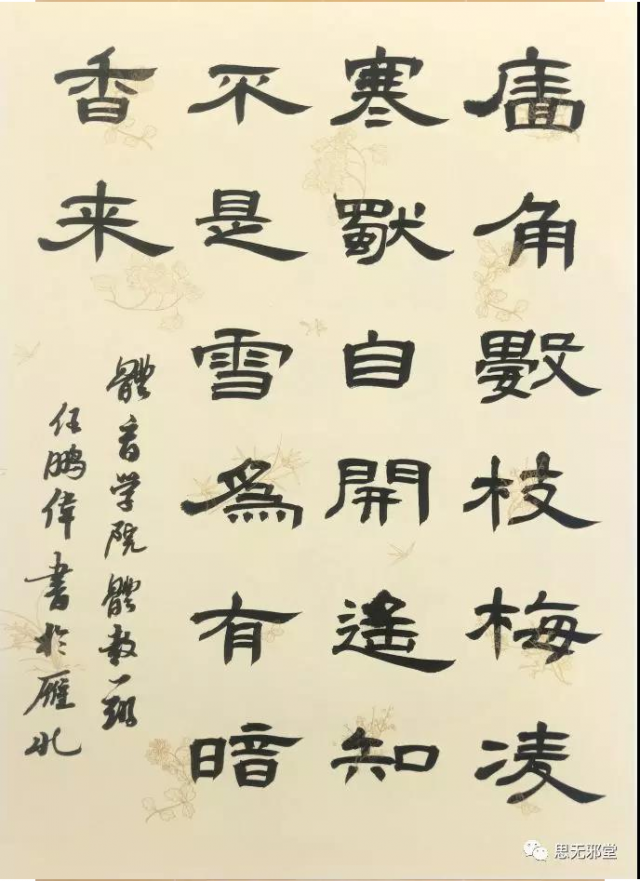 廧角數枝梅凌
寒獸自開遥知
不是雪為有暗
香来
體育学院體教一班
任鹏偉書於雁北
思无邪堂